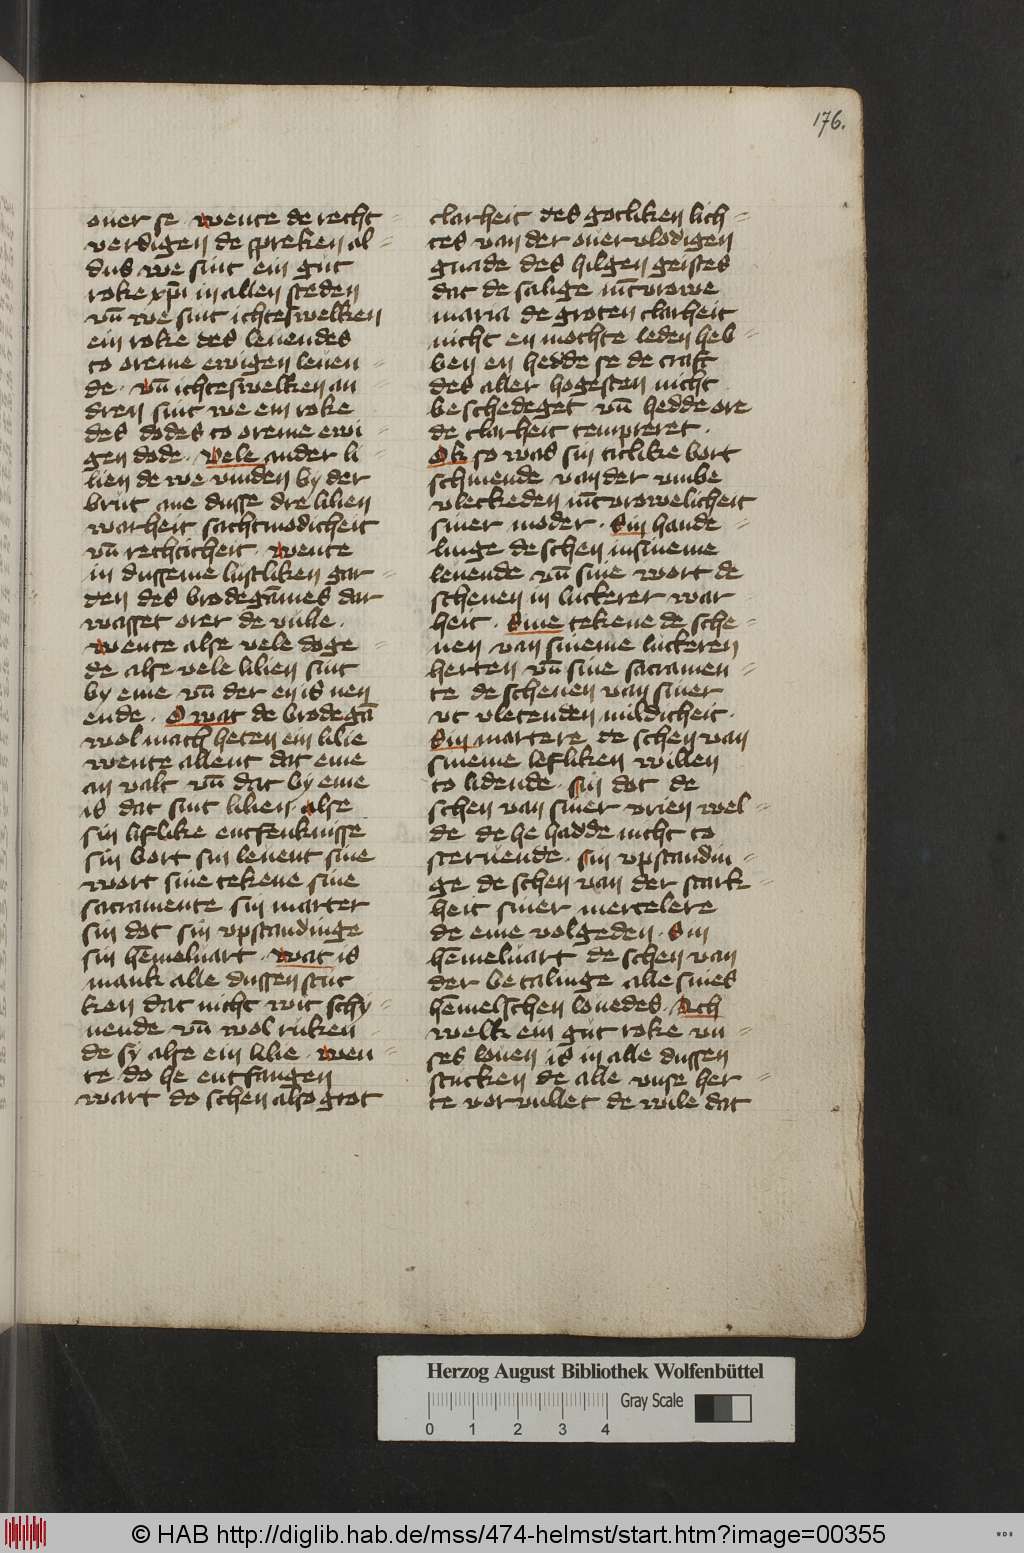 176.
ouer se · wente de recht
verdigen de spreken al
dus we sint ein gut
roke xpi in allen steden
vn̄ we sint ichteswelken
ein roke des leuendes
to oreme ewigen leuen
de · vn̄ ichteswelken an
dren sint we ein roke
des dodes to oreme ewi
gen dode · Vele ander li
lien de we vinden by der
brut ane dusse dre lilien
warheit sachtmodicheit
vn̄ rechticheit · wente
in dusseme lustliken gar
den des brodegāmes dar
wasset orer de vulle ·
wente alse vele doge
de alse vele lilien sint
by eme vn̄ der en is nen
ende · O wat de brodegā
wol mach heten ein lilie
wente allent dat eme
an valt vn̄ dat by eme
is dat sint lilien · alse
sin liflike entfenknisse
sin bort sin leuent sine
wort sine tekene sine
sacramente sin marter
sin dot sin vpstandinge
sin hēmeluart · wat is
mank alle dussen stuc
ken dat nicht wit schy
nende vn̄ wol ruken
de sy alse ein lilie · wen
te do he entfangen
wart do schen also grot
clarheit des gotliken lich
tes van der ouervlodigen
gnade des hilgen geistes
dat de salige iūcvrowe
maria de groten clarheit
nicht en mochte leden heb
ben en hedde se de craft
des aller hogesten nicht
beschedeget vn̄ hedde ore
de clarheit tempreret ·
Ok so was sin titlike bort
schinende van der vmbe
vleckeden iūcvrowelicheit
siner moder · Sin hande
linge de schen in sineme
leuende vn̄ sine wort de
schenen in luckerer war
heit · Sine tekene de sche
nen van sineme luckeren
herten vn̄ sine sacramen
te de schenen van siner
vt vletenden mildicheit ·
Sin martere de schen van
sineme lefliken willen
to lidende · sin dot de
schen van siner vrien wel
de de he hadde nicht to
steruende · sin vpstandin
ge de schen van der stark
heit siner mertelere
de eme volgeden · Sin
hēmeluart de schen van
der betalinge alle sines
hēmelschen louedes · Ach
welk ein gut roke vn
ses louen is in alle dussen
stucken de alle vnse her
te vorvullet de wile dat
Herzog August Bibliothek Wolfenbüttel
Gray Scale
0 1 2 3 4
© HAB http://diglib.hab.de/mss/474-helmst/start.htm?image=00355